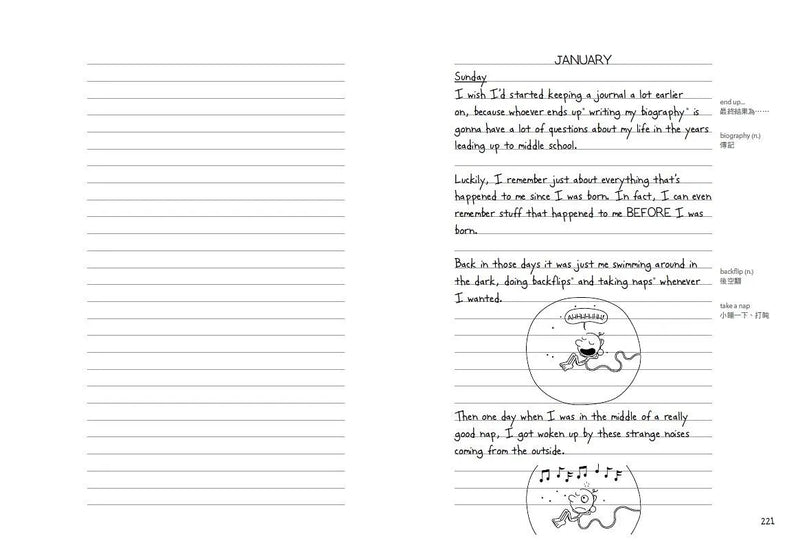 JANUARY
Sunday
I wish I'd started keeping a journal a lot earlier
on, because whoever ends up* writing my biography* is
gonna have a lot of questions about my life in the years
leading up to middle school.
Luckily, I remember just about everything that's
happened to me since I was born. In fact, I can even
remember stuff that happened to me BEFORE I was
born.
Back in those days it was just me swimming around in
the dark, doing backflips* and taking naps* whenever
I wanted.
AHHHHHH!
Then one day when I was in the middle of a really
good nap, I got woken up by these strange noises
coming from the outside.
end up...
最終結果為⋯⋯
biography (n.)
傳記
backflip (n.)
後空翻
take a nap
小睡一下、打盹
221